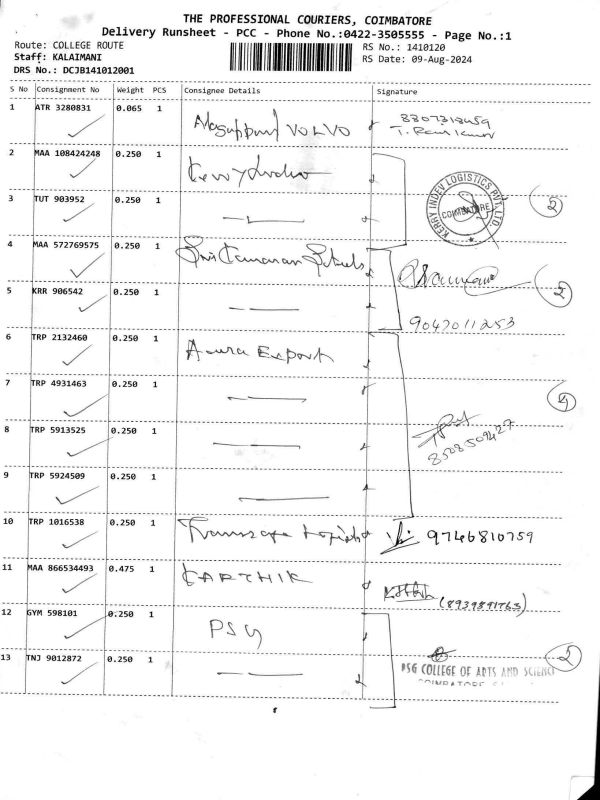 THE PROFESSIONAL COURIERS, COIMBATORE
Delivery Runsheet - PCC - Phone No.:0422-3505555 - Page No.:1
Route: COLLEGE ROUTE RS No.: 1410120
Staff: KALAIMANI RS Date: 09-Aug-2024
DRS No.: DCJB141012001
S No Consignment No Weight PCS Consignee Details Signature
1 ATR 3280831 0.065 1 VOLVO
2 MAA 108424248 0.250 1
KERRY INDEV LOGISTICS PVT. LTD. COIMBATORE
3 TUT 903952 0.250 1 2
4 MAA 572769575 0.250 1
5 KRR 906542 0.250 1 2
9047011253
6 TRP 2132460 0.250 1 Export
7 TRP 4931463 0.250 1 4
8 TRP 5913525 0.250 1
9 TRP 5924509 0.250 1
10 TRP 1016538 0.250 1 9746810759
11 MAA 866534493 0.475 1 KARTHIK
12 GYM 598101 0.250 1 PSG
13 TNJ 9012872 0.250 1 2
PSG COLLEGE OF ARTS AND SCIENCE
COIMBATORE